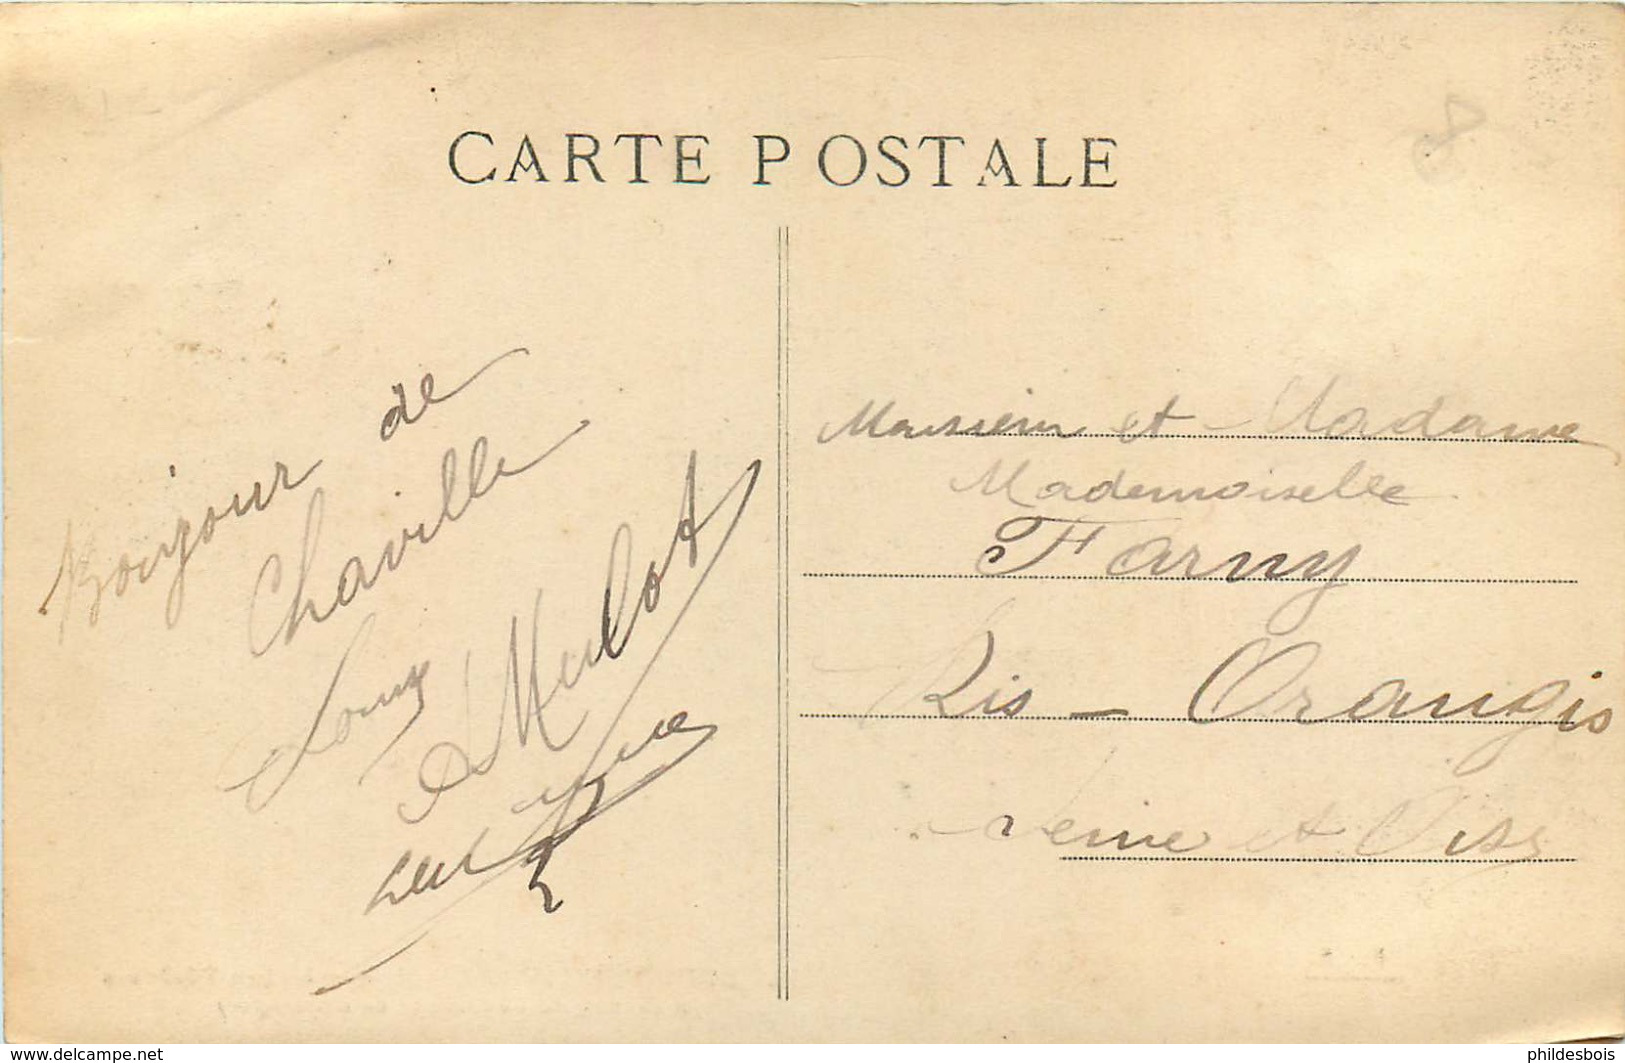 CARTE POSTALE
Bonjour de
Chaville
Mulot
Monsieur et Madame
Mademoiselle
Farny
Ris - Orangis
Seine et Oise
www.delcampe.net
phildesbois